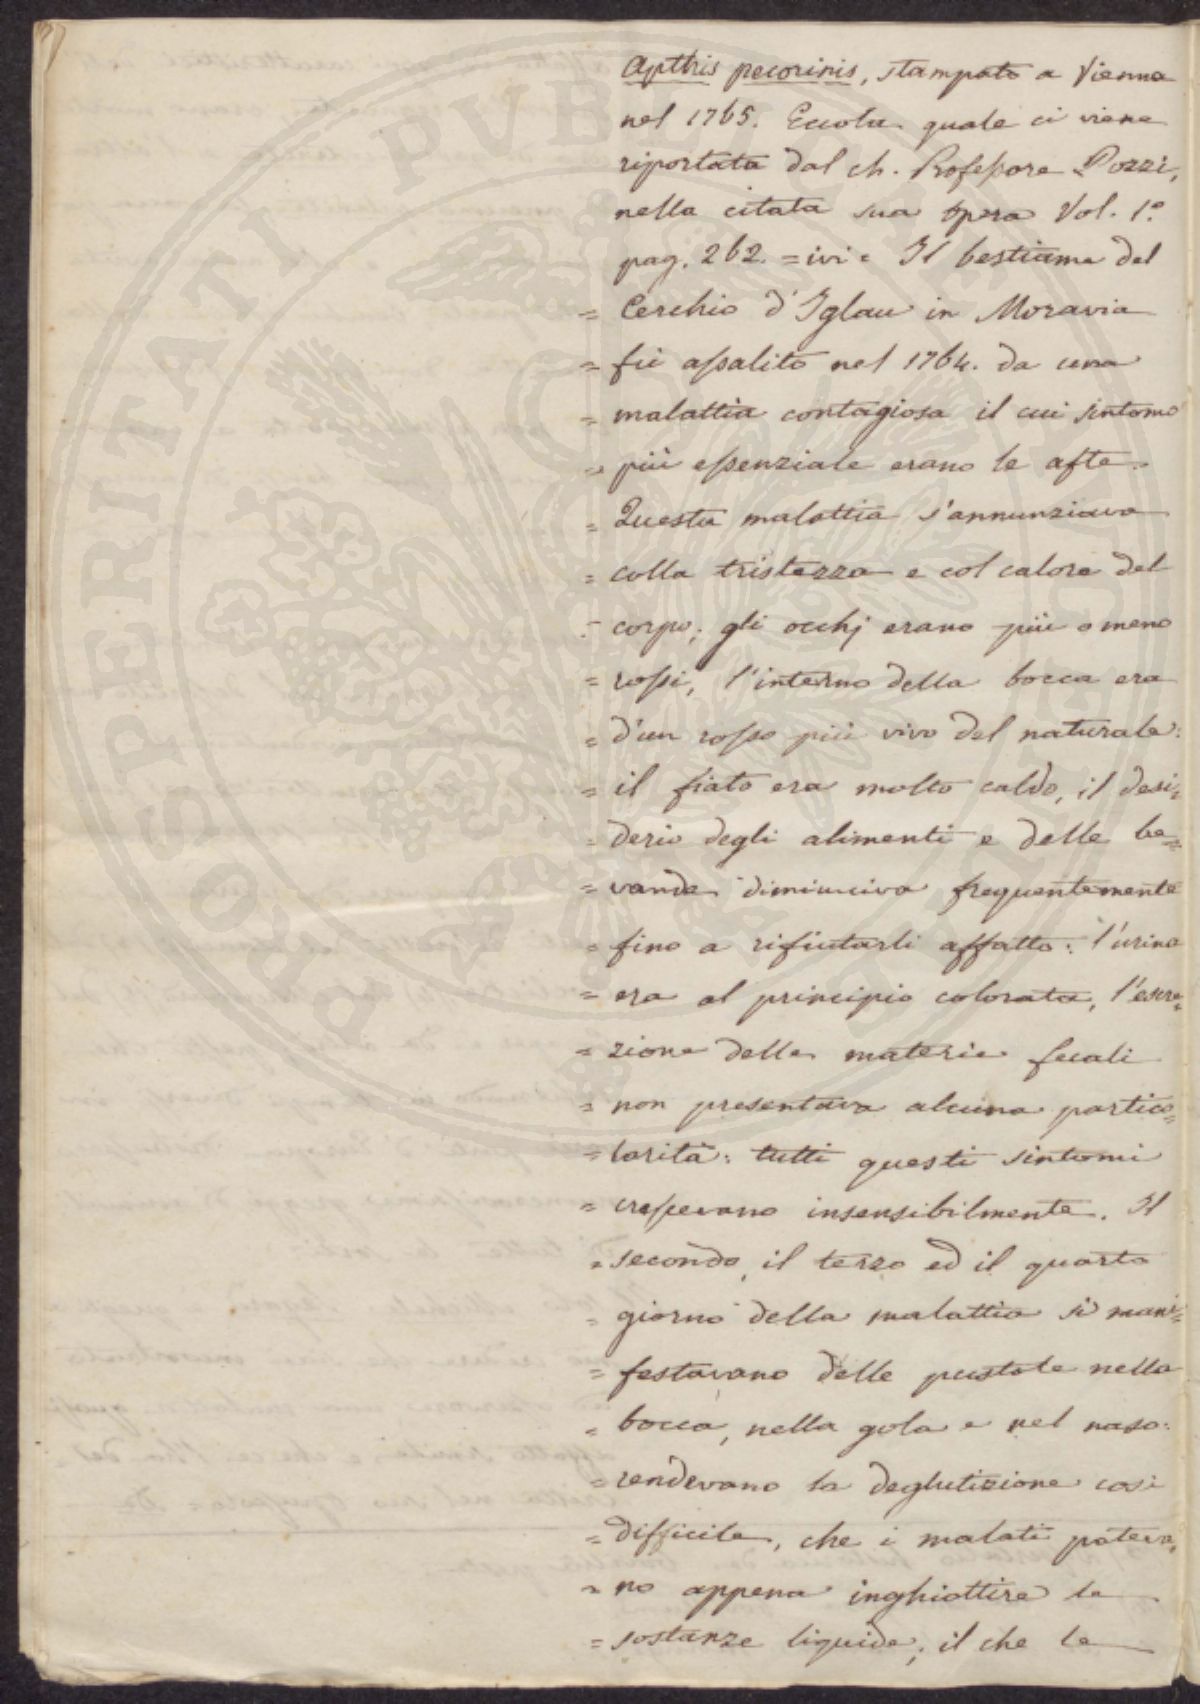 Apthis pecorinis, stampato a Vienna
nel 1765. Eccola quale ci viene
riportata dal ch. Professore Pozzi,
nella citata sua opera Vol. 1.º
pag. 262. = ivi = Il bestiame del
= Cerchio d'Iglau in Moravia
= fù assalito nel 1764. da una
= malattia contagiosa il cui sintomo
= più essenziale erano le afte.
= Questa malattia s'annunziava
= colla tristezza e col calore del
= corpo; gli occhj erano più o meno
= rossi, l'interno della bocca era
= d'un rosso più vivo del naturale:
= il fiato era molto caldo, il desi=
= derio degli alimenti e delle be=
= vande diminuiva frequentemente
= fino a rifiutarli affatto: l'urina
= era al principio colorata, l'escre=
= zione delle materie fecali
= non presentava alcuna partico=
= larità: tutti questi sintomi
= crescevano insensibilmente. Il
= secondo, il terzo ed il quarto
= giorno della malattia si mani=
= festavano delle pustole nella
= bocca, nella gola e nel naso:
= rendevano la deglutizione così
= difficile, che i malati poteva=
= no appena inghiottire le
= sostanze liquide; il che le
PROSPERITATI PVBLICAE